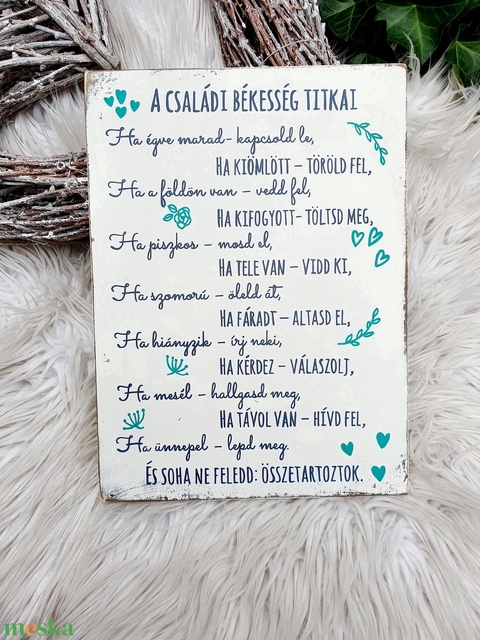 A CSALÁDI BÉKESSÉG TITKAI
Ha égve marad- kapcsold le,
HA KIÖMLÖTT – TÖRÖLD FEL,
Ha a földön van – vedd fel,
HA KIFOGYOTT- TÖLTSD MEG,
Ha piszkos – mosd el,
HA TELE VAN – VIDD KI,
Ha szomorú – öleld át,
HA FÁRADT – ALTASD EL,
Ha hiányzik – írj neki,
HA KÉRDEZ – VÁLASZOLJ,
Ha mesél – hallgasd meg,
HA TÁVOL VAN – HÍVD FEL,
Ha ünnepel – lepd meg.
ÉS SOHA NE FELEDD: ÖSSZETARTOZTOK.
meska